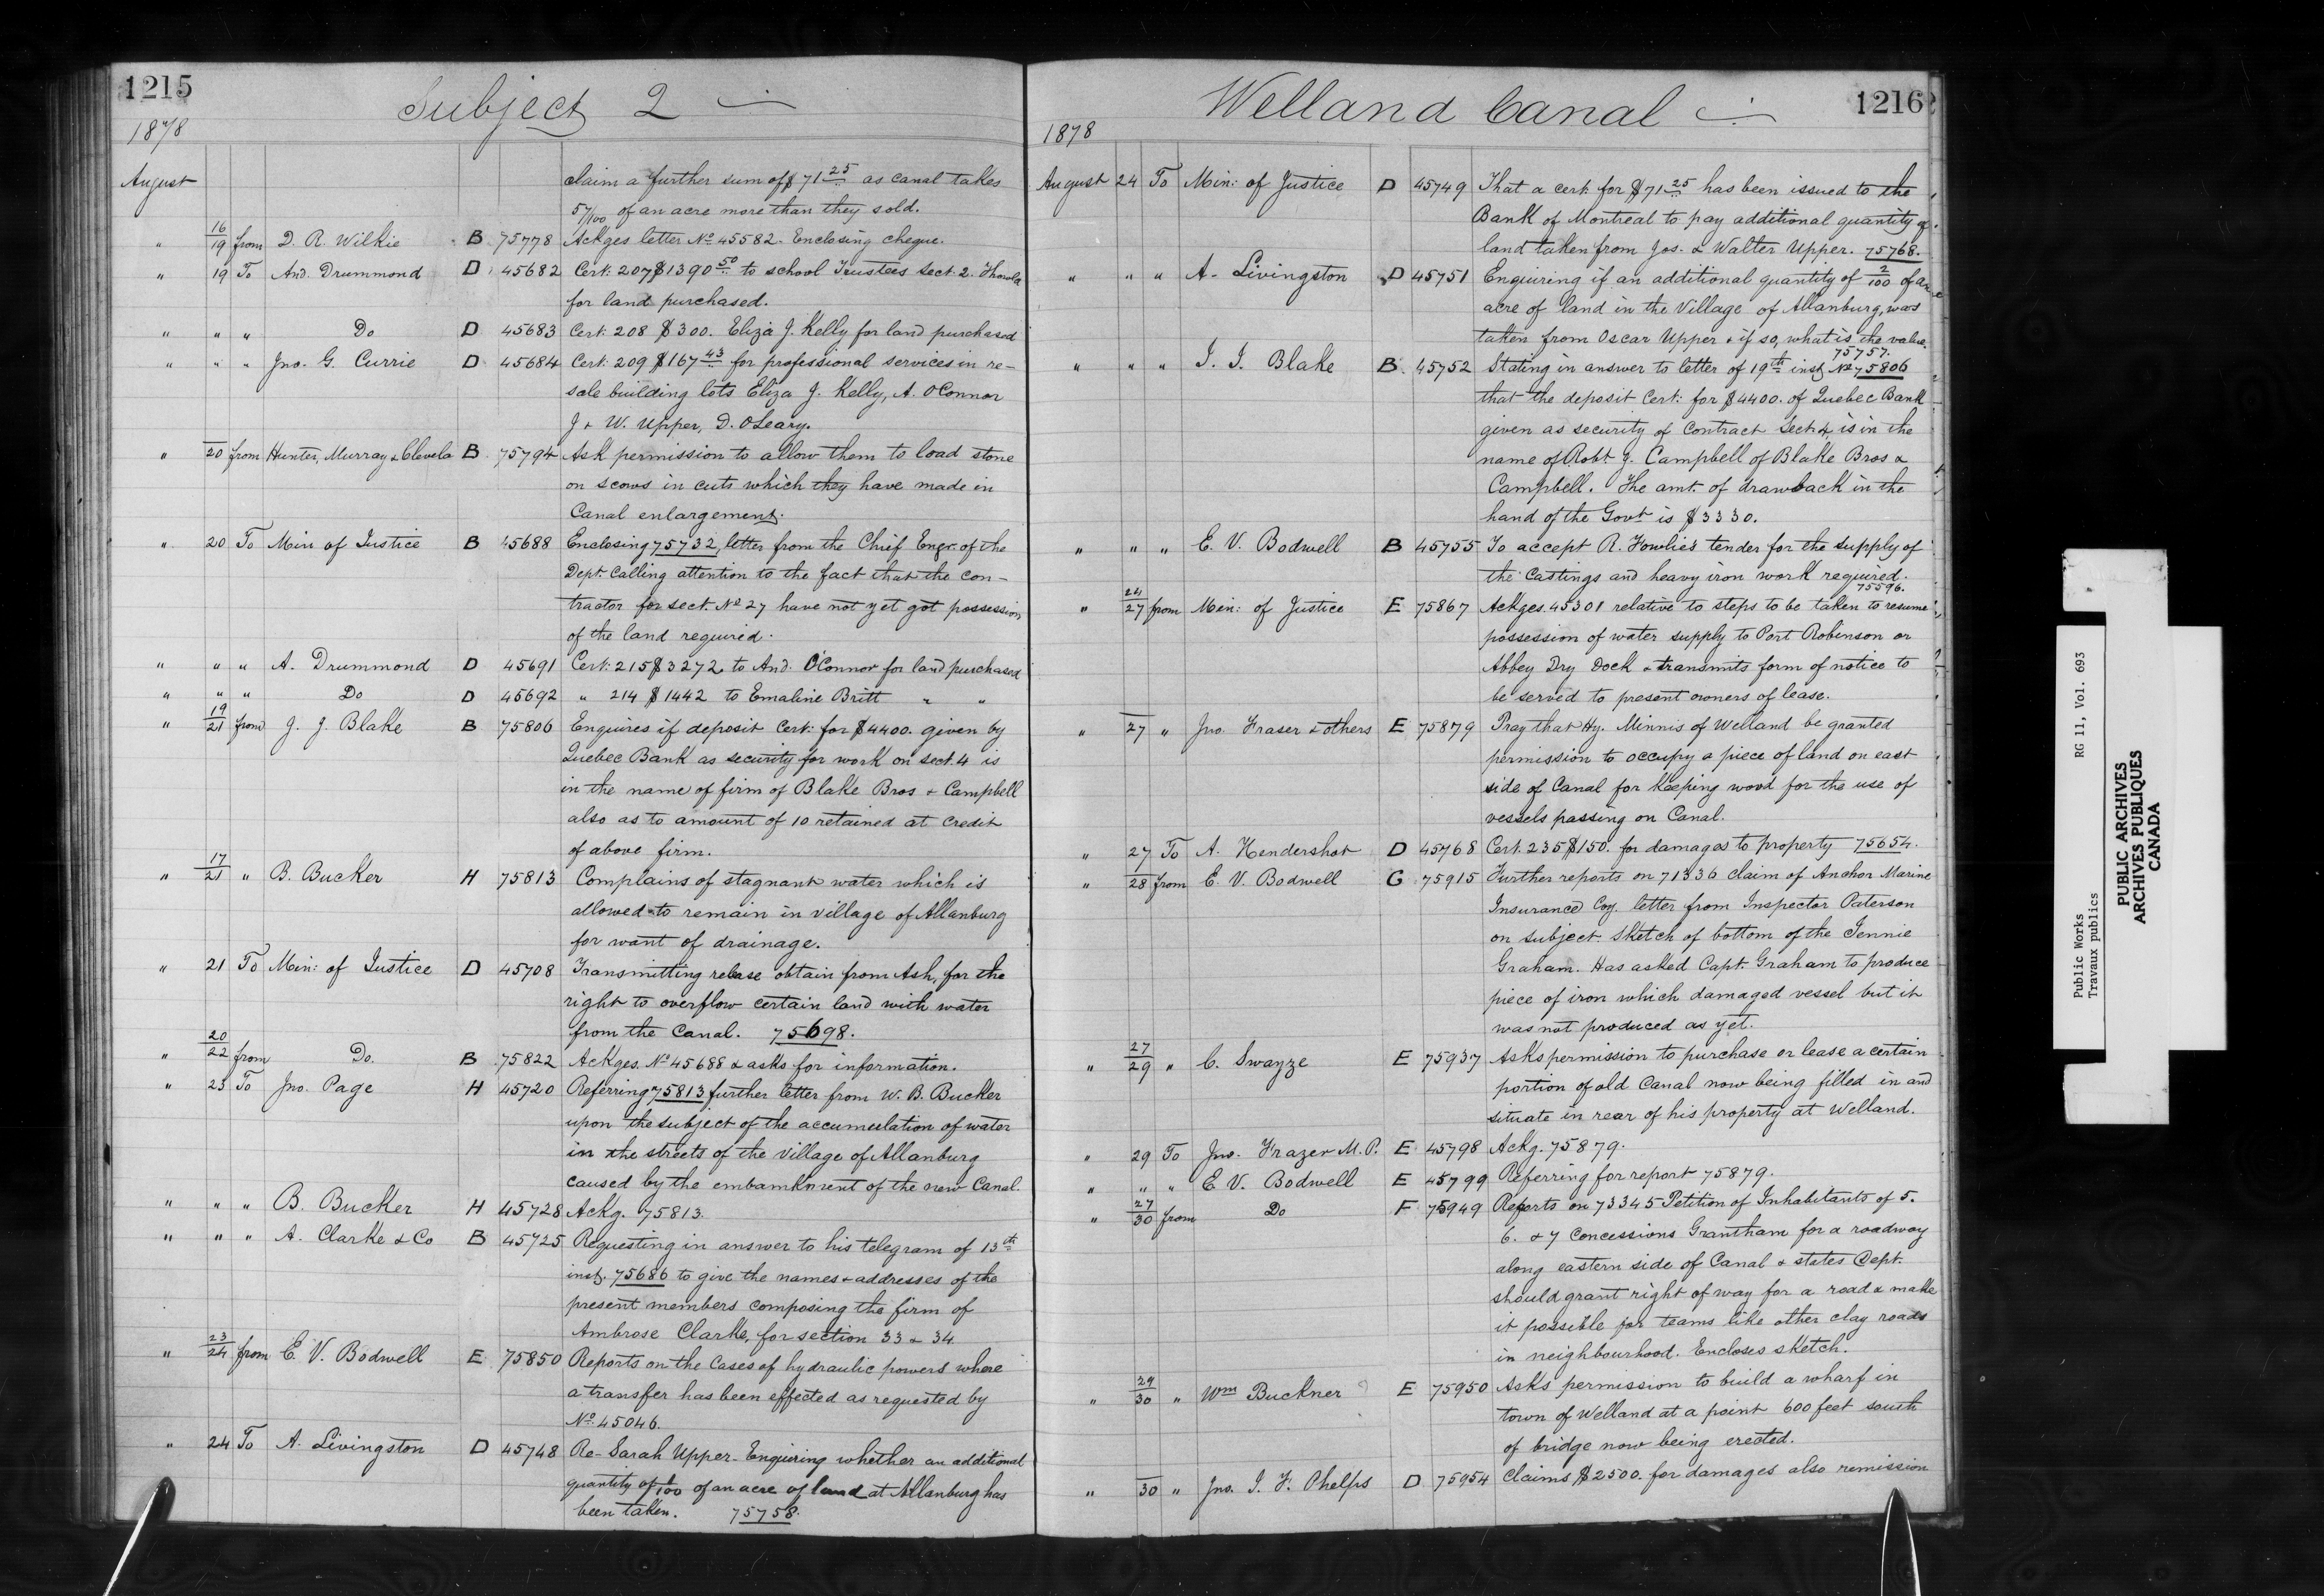 1215
Subject 2
1878
August claim a further sum of $71 25 as canal takes
57/100 of an acre more than they sold.
" 16/19 from D. R. Wilkie B 75778 Ackges letter No 45582. Enclosing cheque.
" 19 To And. Drummond D 45682 Cert: 207 $1390 50 to school Trustees Sect. 2.
for land purchased.
" " " Do D 45683 Cert: 208 $300. Eliza J. Kelly for land purchased
" " " Jno. G. Currie D 45684 Cert: 209 $167 43 for professional services in re-
sale building lots Eliza J. Kelly, A. OConnor
J & W. Upper, D. OLeary.
" 20 from Hunter, Murray & Clevela B 75794 Ask permission to allow them to load stone
on scows in cuts which they have made in
Canal enlargement.
" 20 To Min of Justice B 45688 Enclosing 75732, letter from the Chief Engr. of the
Dept. Calling attention to the fact that the con-
tractor for sect. No 27 have not yet got possession
of the land required.
" " " A. Drummond D 45691 Cert: 215 $3272. to And. O'Connor for land purchased
" " " Do D 45692 " 214 $1442 to Emaline Britt " "
" 19/21 from J. J. Blake B 75806 Enquires if deposit Cert: for $4400. given by
Quebec Bank as security for work on sect. 4 is
in the name of firm of Blake Bros & Campbell
also as to amount of 10 retained at credit
of above firm.
" 17/21 " B. Bucker H 75813 Complains of stagnant water which is
allowed to remain in village of Allanburg
for want of drainage.
" 21 To Min: of Justice D 45708 Transmitting release obtain from Ash, for the
right to overflow certain land with water
from the Canal. 75698.
" 20/22 from Do. B 75822 Ackges. No 45688 & asks for information.
" 23 To Jno. Page H 45720 Referring 75813 further letter from W. B. Bucker
upon the subject of the accumulation of water
in the streets of the village of Allanburg
caused by the embankment of the new Canal.
" " " B. Bucker H 45728 Ackg. 75813.
" " " A. Clarke & Co B 45725 Requesting in answer to his telegram of 13th
inst. 75686 to give the names & addresses of the
present members composing the firm of
Ambrose Clarke, for section 33 & 34
" 23/24 from E. V. Bodwell E 75850 Reports on the Cases of hydraulic powers where
a transfer has been effected as requested by
No 45046.
" 24 To A. Livingston D 45748 Re- Sarah Upper- Enquiring whether an additional
quantity of /100 of an acre of land at Allanburg has
been taken. 75758.
Welland Canal
1216
1878
August 24 To Min: of Justice D 45749 That a cert: for $71 25 has been issued to the
Bank of Montreal to pay additional quantity of
land taken from Jos. & Walter Upper. 75768.
" " " A. Livingston D 45751 Enquiring if an additional quantity of 2/100 of an
acre of land in the Village of Allanburg, was
taken from Oscar Upper & if so, what is the value.
75757.
" " " J. J. Blake B 45752 Stating in answer to letter of 19th inst No 75806
that the deposit Cert: for $4400. of Quebec Bank
given as security of Contract Sect. 4, is in the
name of Robt. J. Campbell of Blake Bros &
Campbell. The amt. of drawback in the
hand of the Govt is $3330.
" " " E. V. Bodwell B 45755 To accept R. Fowlie's tender for the supply of
the Castings and heavy iron work required.
75596.
" 24/27 from Min: of Justice E 75867 Ackges. 45301 relative to steps to be taken to resume
possession of water supply to Port Robinson or
Abbey Dry Dock & transmits form of notice to
be served to present owners of lease.
" 27 " Jno Fraser & others E 75879 Pray that Hy. Minnis of Welland be granted
permission to occupy a piece of land on east
side of Canal for keeping wood for the use of
vessels passing on Canal.
" 27 To A. Hendershot D 45768 Cert. 235 $150. for damages to property 75654.
" 28 from E. V. Bodwell G 75915 Further reports on 71336 claim of Anchor Marine
Insurance Coy. letter from Inspector Paterson
on subject. Sketch of bottom of the Jennie
Graham. Has asked Capt. Graham to produce
piece of iron which damaged vessel but it
was not produced as yet.
" 27/29 " C. Swayze E 75937 Asks permission to purchase or lease a certain
portion of old Canal now being filled in and
situate in rear of his property at Welland.
" 29 To Jno. Frazer M.P. E 45798 Ackg. 75879.
" " " E V. Bodwell E 45799 Referring for report 75879.
" 27/30 from Do F 75949 Reports on 73345 Petition of Inhabitants of 5.
6. & 7 Concessions Grantham for a roadway
along eastern side of Canal & states Dept.
should grant right of way for a road & make
it possible for teams like other clay roads
in neighbourhood. Encloses sketch.
" 29/30 " Wm Buckner E 75950 Asks permission to build a wharf in
town of Welland at a point 600 feet south
of bridge now being erected.
" 30 " Jno. J. F. Phelps D 75954 Claims $2500. for damages also remission
Public Works RG 11, Vol. 693
Travaux publics
PUBLIC ARCHIVES
ARCHIVES PUBLIQUES
CANADA